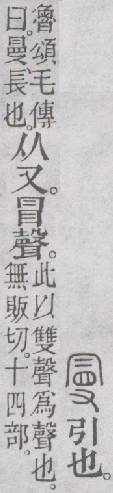 曼引也。
魯頌毛傳
曰。曼、長也。
从又。冒聲。
此以雙聲爲聲也。
無販切。十四部。